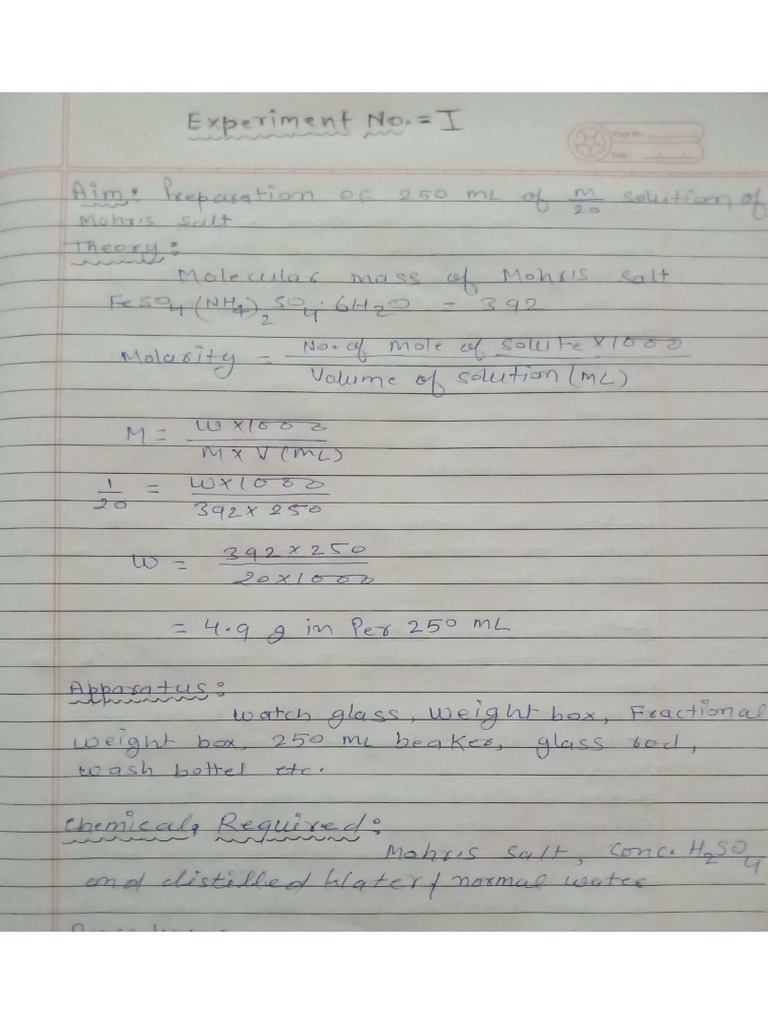 Experiment No. = I
Aim: Preparation of 250 mL of M/20 solution of
Mohris salt
Theory:
Molecular mass of Mohris salt
FeSO4(NH4)2SO4·6H2O = 392
Molarity = No. of mole of solute × 1000 / Volume of solution (mL)
M = W×1000 / M×V(mL)
1/20 = W×1000 / 392×250
W = 392×250 / 20×1000
= 4.9 g in Per 250 mL
Apparatus:
Watch glass, Weight box, Fractional
weight box, 250 mL beaker, glass rod,
wash bottel etc.
Chemicals Required:
Mohris salt, Conc. H2SO4
and distilled Water/normal water